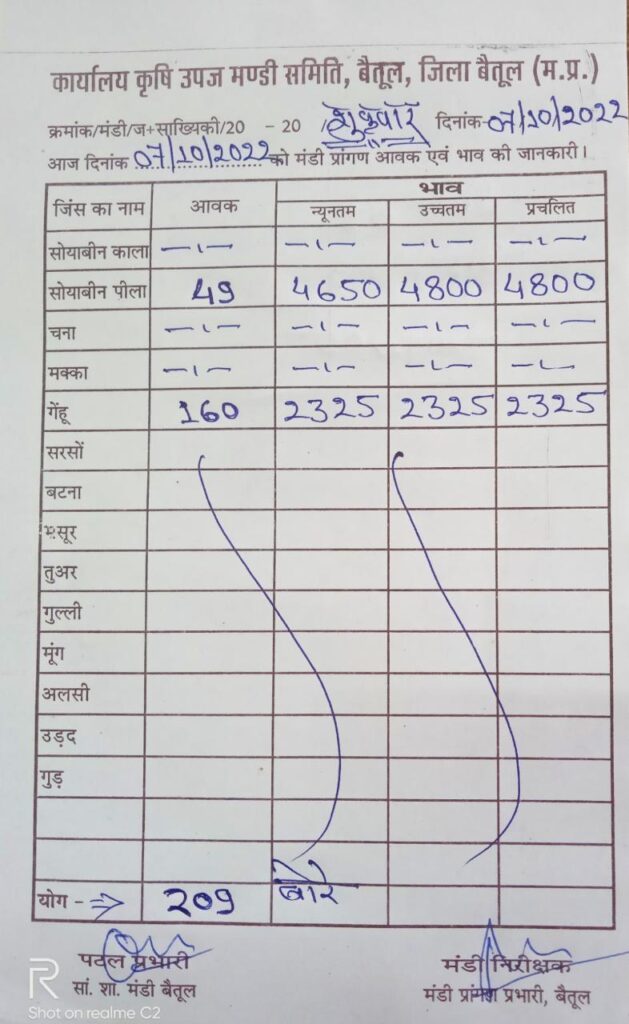 कार्यालय कृषि उपज मण्डी समिति, बैतूल, जिला बैतूल (म.प्र.)
क्रमांक/मंडी/ज+साख्यिकी/20 - 20 /शुक्रवार दिनांक-07/10/2022
आज दिनांक 07/10/2022 को मंडी प्रांगण आवक एवं भाव की जानकारी।
जिंस का नाम आवक भाव
न्यूनतम उच्चतम प्रचलित
सोयाबीन काला -ı- -ı- -ı- -ı-
सोयाबीन पीला 49 4650 4800 4800
चना -ı- -ı- -ı- -ı-
मक्का -ı- -ı- -ı- -ı-
गेंहू 160 2325 2325 2325
सरसों
बटना
मसूर
तुअर
गुल्ली
मूंग
अलसी
उड़द
गुड़
योग - => 209 बोरे
पटल प्रभारी मंडी निरीक्षक
सां. शा. मंडी बैतूल मंडी प्रांगण प्रभारी, बैतूल
R
Shot on realme C2